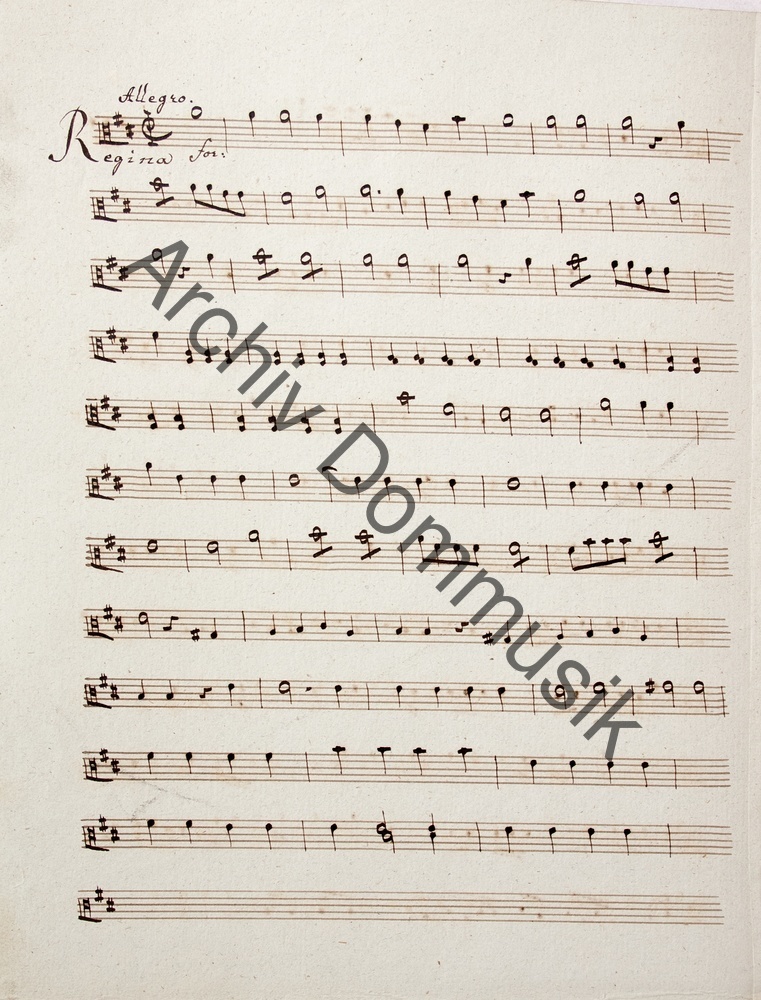 Allegro.
Regina for:
Archiv Dommusik